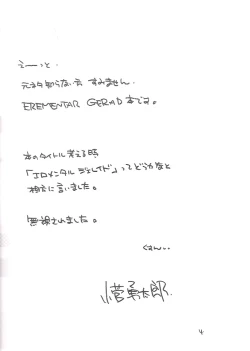 えーっと、
元ネタ知らない方 すみません。
EREMENTAR GERAD 本です。
本のタイトル考える時
「エロメンタル ジェレイド」ってどうかなと
相方に言いました。
無視されました。
くすん..
小菅勇太郎.
4